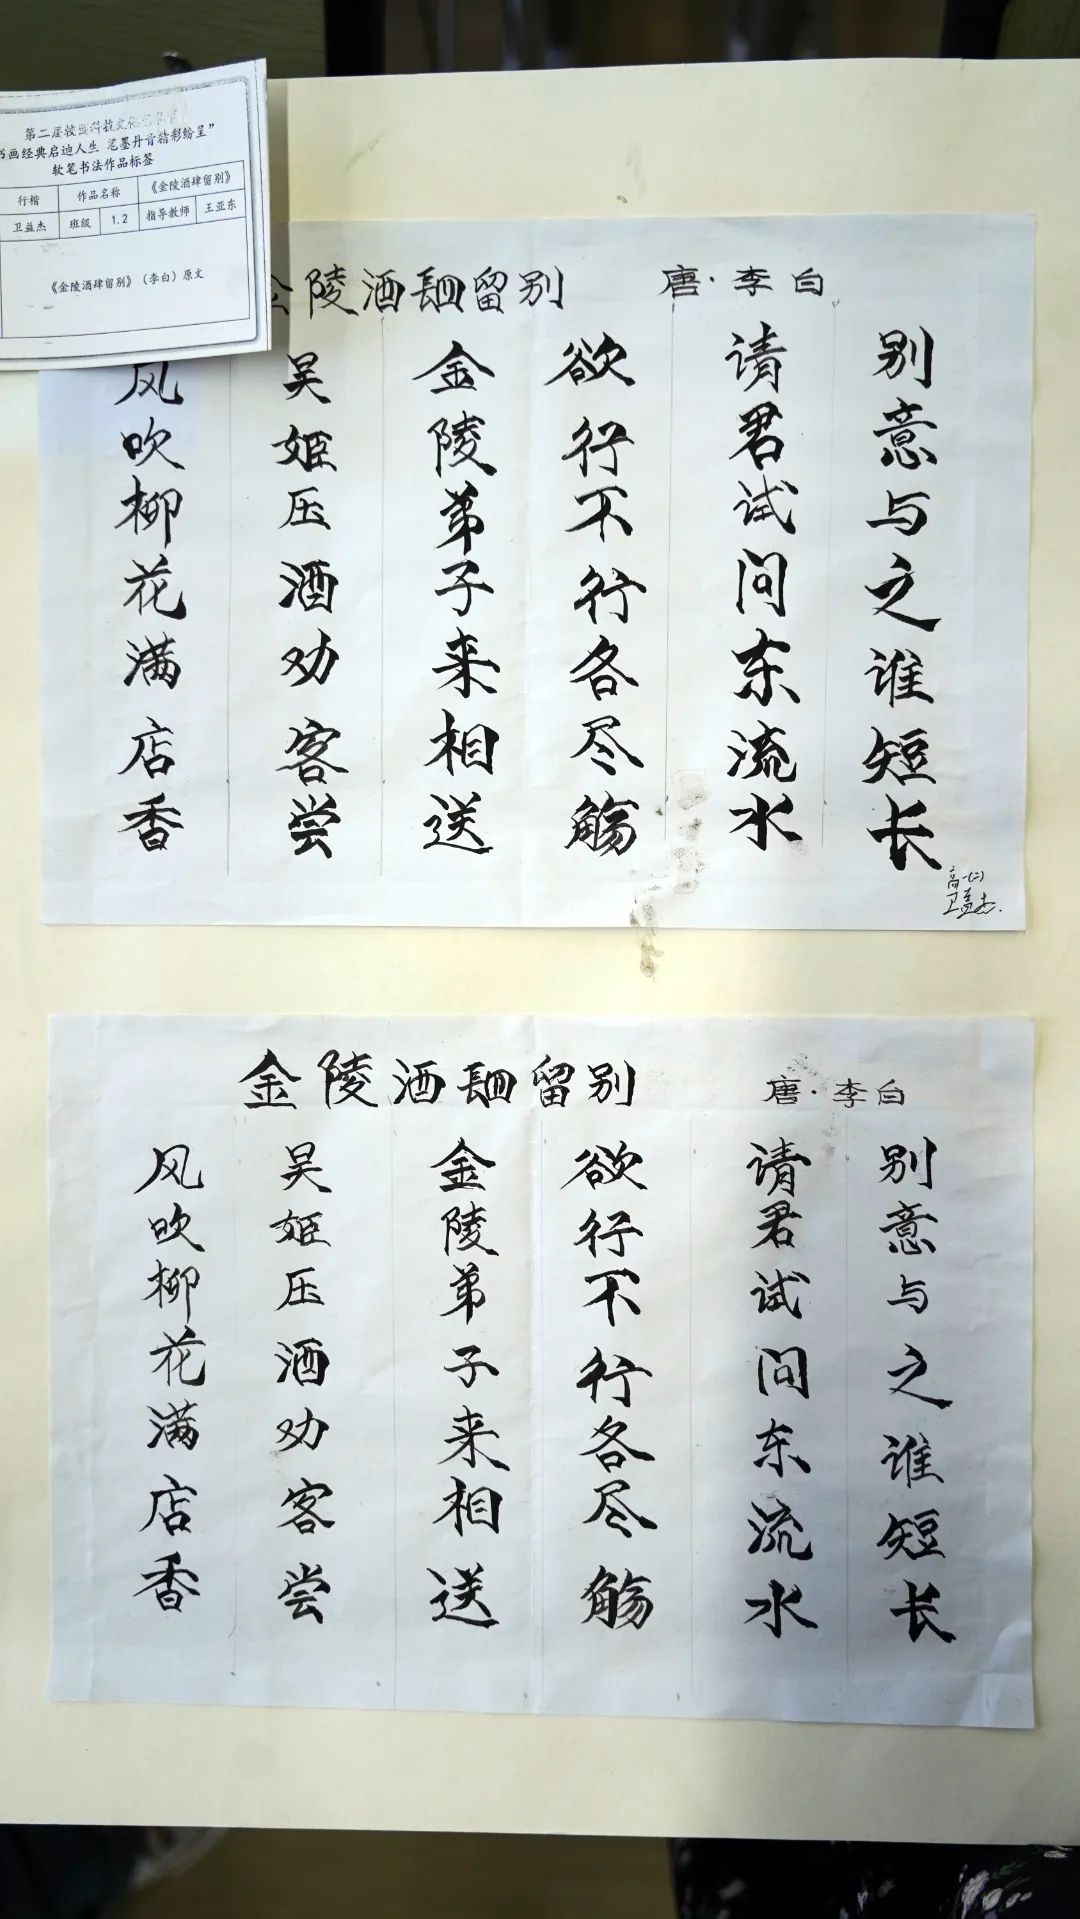 第二届校园科技文化艺术节
书画经典启迪人生 笔墨丹青精彩纷呈”
软笔书法作品标签
行楷 作品名称 《金陵酒肆留别》
卫益杰 班级 1.2 指导教师 王亚东
《金陵酒肆留别》（李白）原文
金陵酒肆留别 唐·李白
风吹柳花满店香
吴姬压酒劝客尝
金陵弟子来相送
欲行不行各尽觞
请君试问东流水
别意与之谁短长
高一(二)
卫益杰
金陵酒肆留别 唐·李白
风吹柳花满店香
吴姬压酒劝客尝
金陵弟子来相送
欲行不行各尽觞
请君试问东流水
别意与之谁短长